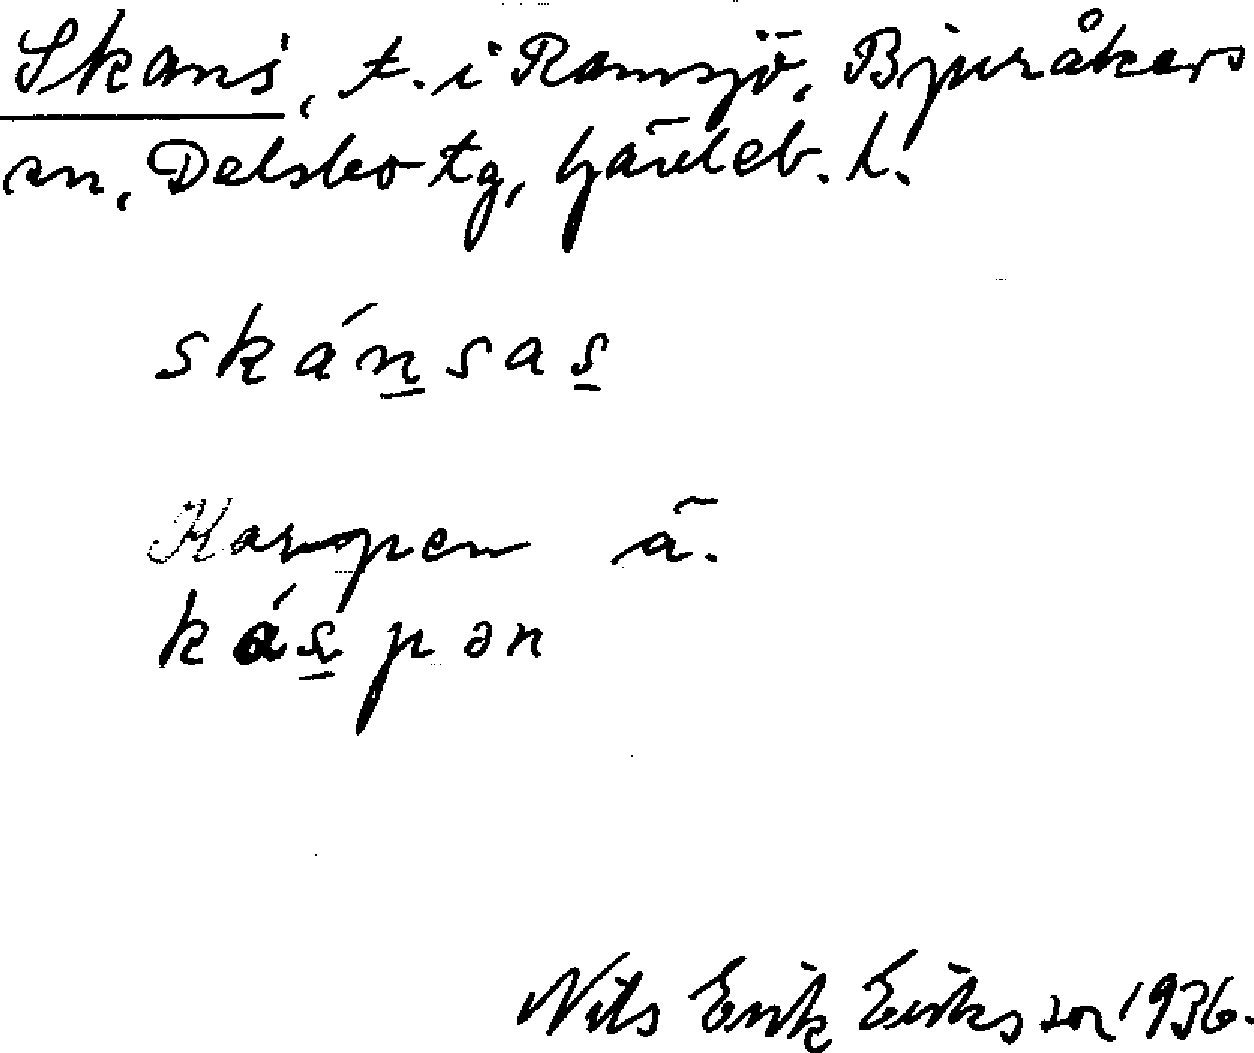 Skans, t. i Ramsjö, Bjuråkers
sn, Delsbo tg, Gävleb. l.
skánsas
Karpen ä.
kárpən
Nils Erik Eriksson 1936.